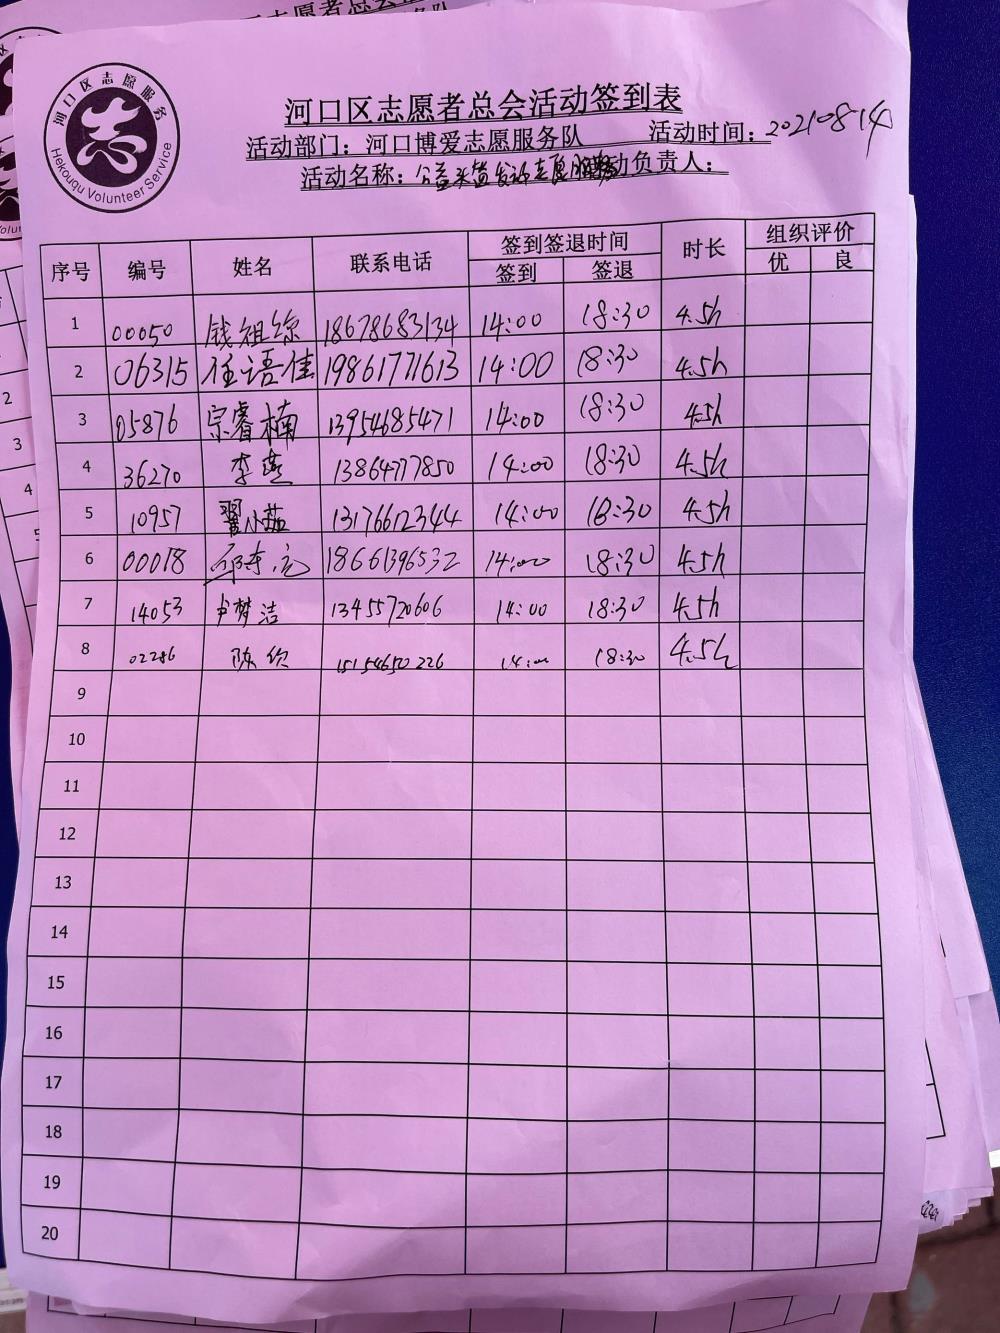 河口区志愿服务
Hekouqu Volunteer Service
河口区志愿者总会活动签到表
活动部门：河口博爱志愿服务队 活动时间：20210814
活动名称：公益 志愿 动负责人：
序号 编号 姓名 联系电话 签到签退时间 时长 组织评价
签到 签退 优 良
1 00050 钱祖综 18678683134 14:00 18:30 4.5h
2 06315 任语佳 19861771613 14:00 18:30 4.5h
3 05876 宗睿楠 13954685471 14:00 18:30 4.5h
4 36270 李燕 13864777850 14:00 18:30 4.5h
5 10957 翟小茹 13176612344 14:00 18:30 4.5h
6 00018 18661396532 14:00 18:30 4.5h
7 14053 卢梦洁 13455720606 14:00 18:30 4.5h
8 02286 陈 15154650226 14:00 18:30 4.5h
9
10
11
12
13
14
15
16
17
18
19
20